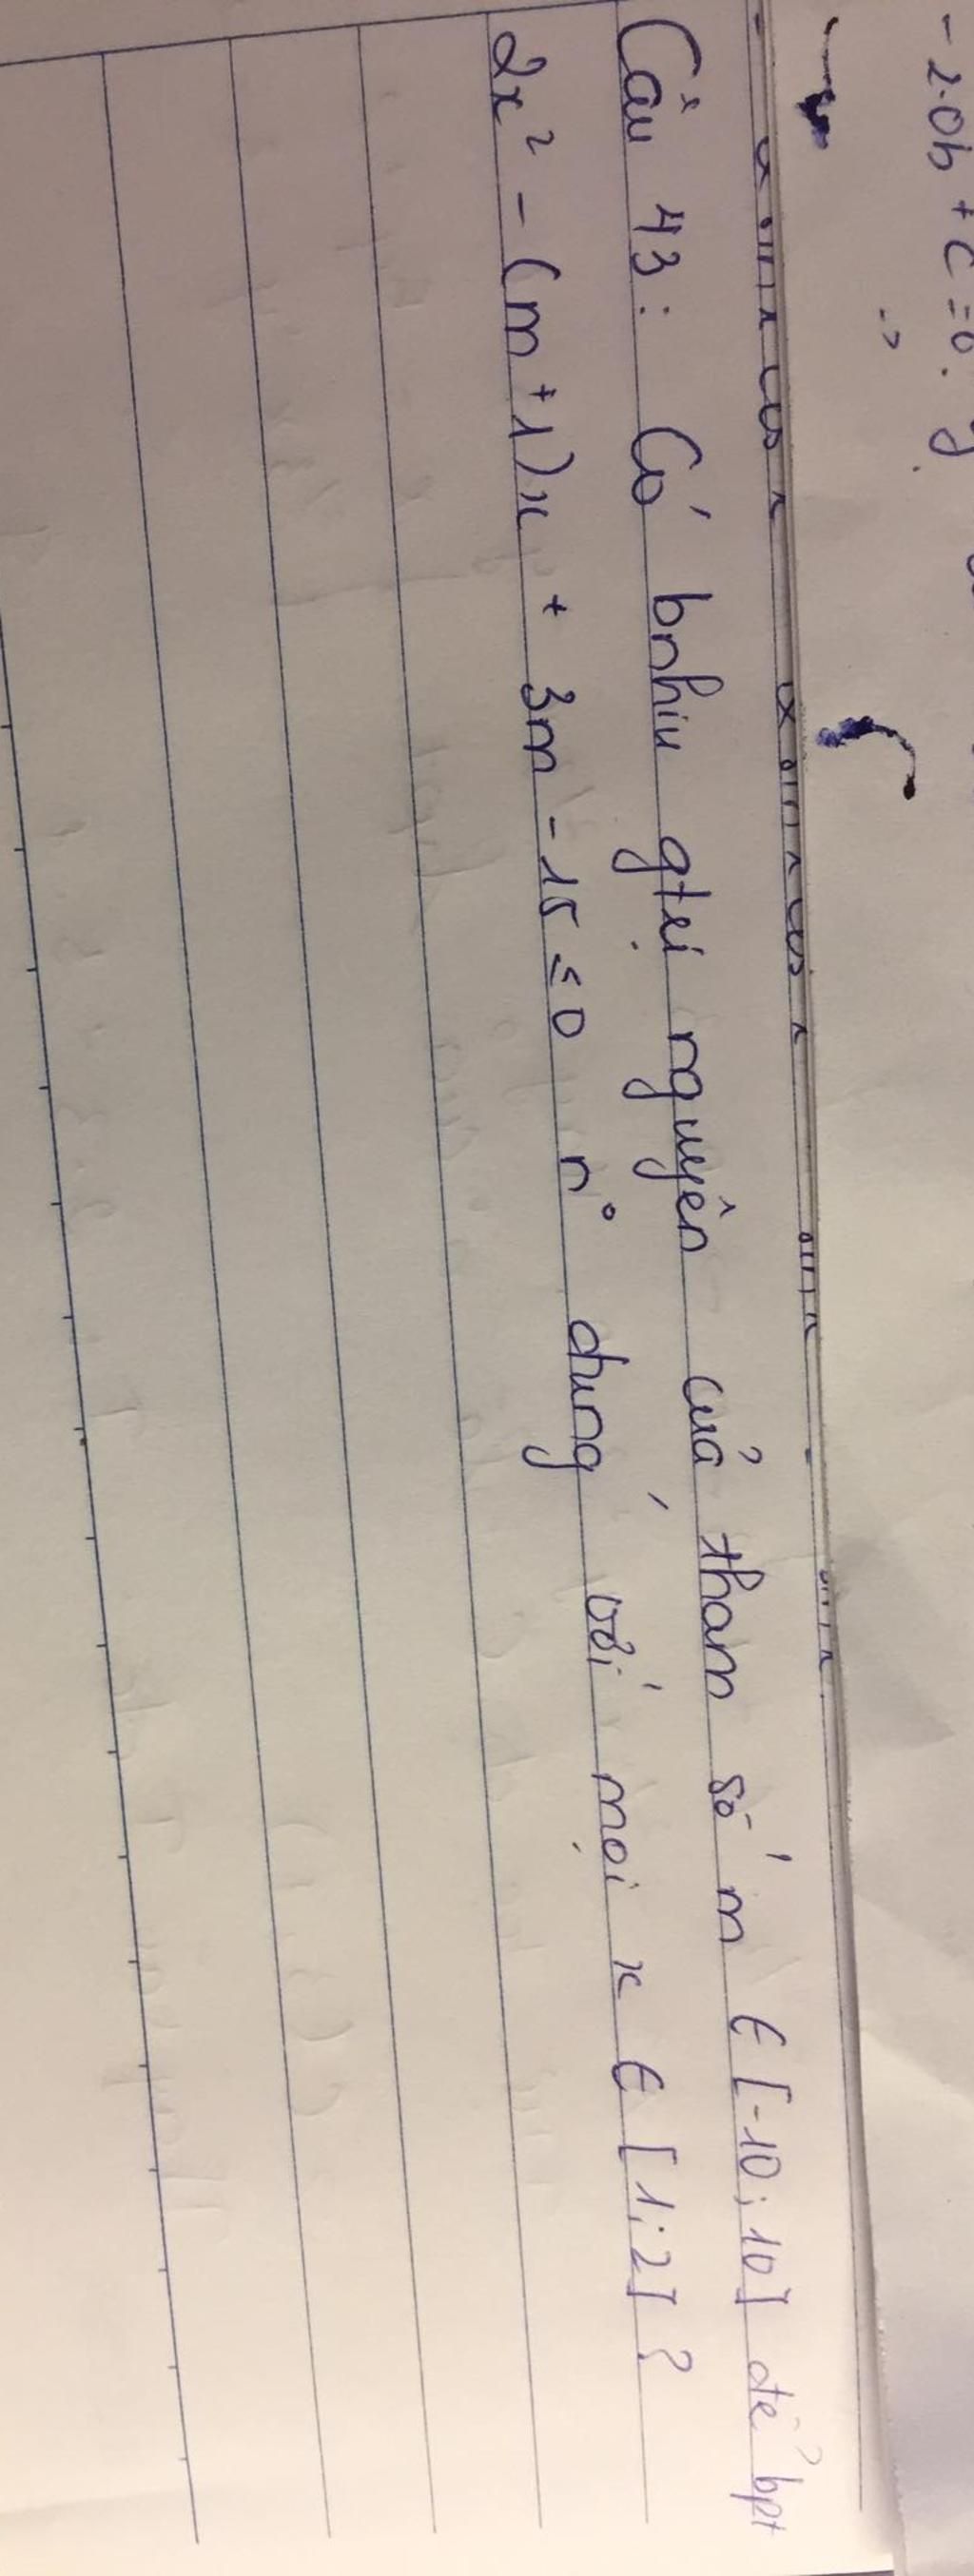 - 2.0b + c = 0.
Câu 43: Có bnhiu gtrị nguyên của tham số m ∈ [-10; 10] để bpt
2x² - (m + 1)x + 3m - 15 ≤ 0 n° đúng với mọi x ∈ [1; 2] ?